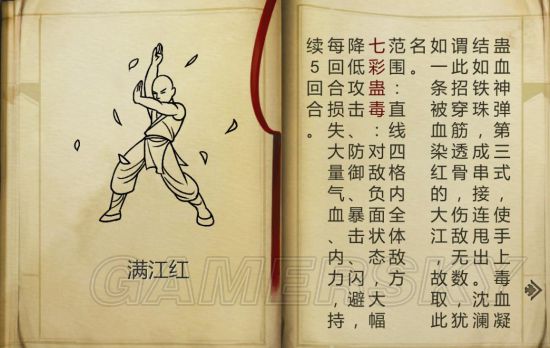 蛊血神弹第三式，使手上毒血凝
结如铁珠，成串接连甩出。沈澜
谓此招穿筋透骨，伤敌无数，犹
如一条被血染红的大江，故取此
名。
范围：直线四格内全体敌方
七彩蛊毒：对敌负面状态，大幅
降低攻击、防御、暴击、闪避，
每回合损失大量气血、内力，持
续5回合。
满江红
GAMERSKY